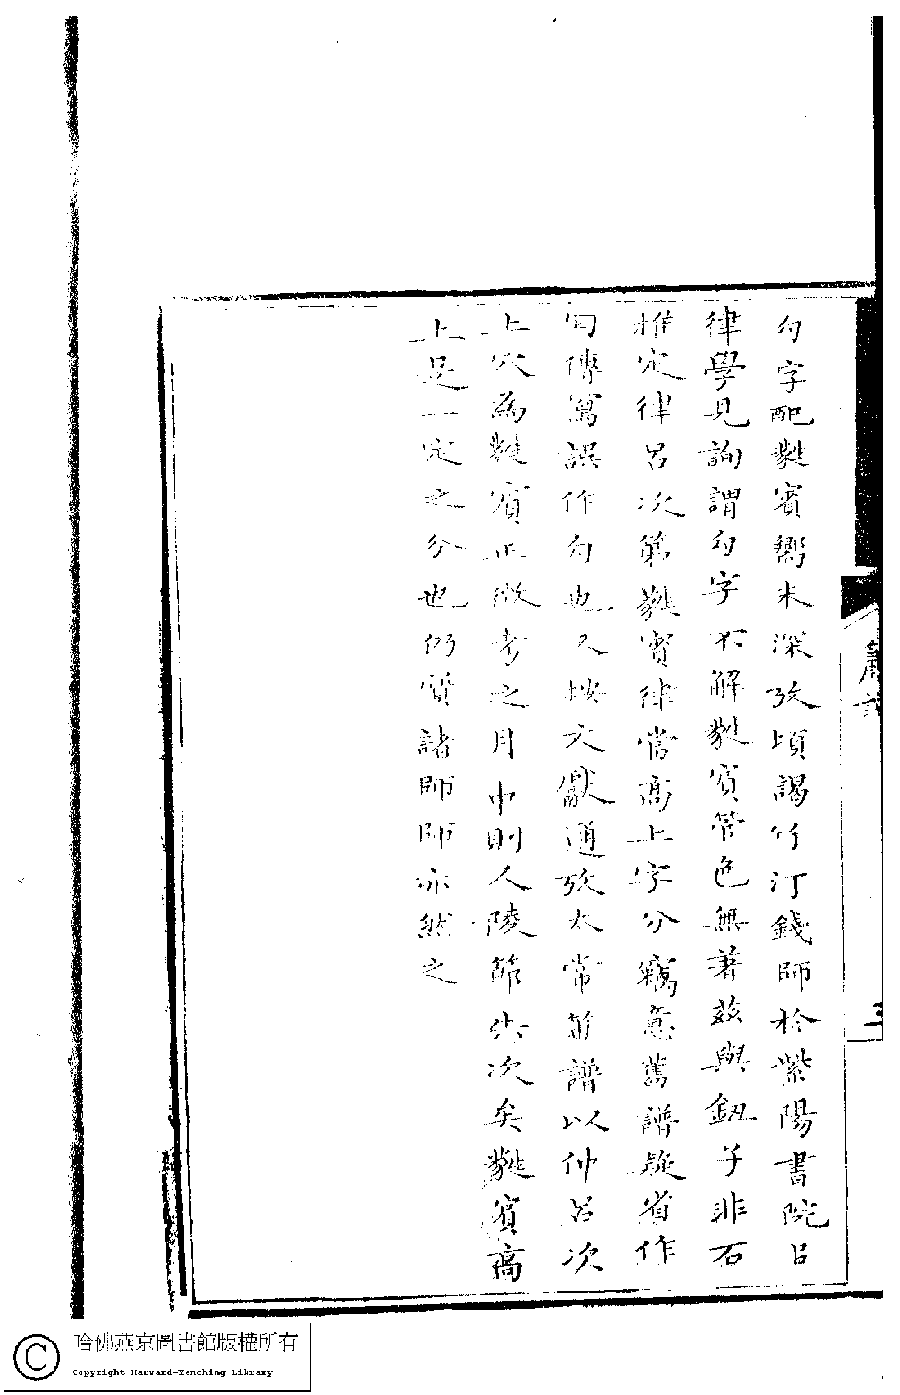 勾字配蕤賓嚮未深攷頃謁竹汀錢師於紫陽書院㠯
律學見詢謂勾字不解蕤賓管色無著茲與釰子非石
推定律呂次第蕤賓律當高上字分竊意舊譜疑省作
句傳寫誤作勾也又按文獻通攷太常笛譜以仲呂次
上穴為蕤賓正徵考之月中則人陵節失次矣蕤賓高
上是一定之分也仍質諸師師亦然之
哈佛燕京圖書館版權所有
Copyright Harvard-Yenching Library